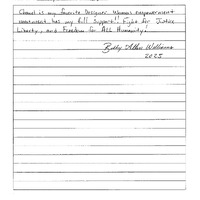 Chanel is my favorite Designer Womans empowerment
movement has my full Support!! Fight for Justice
Liberty, and Freedom for ALL Humanity!
Billy Allen Williams
2025